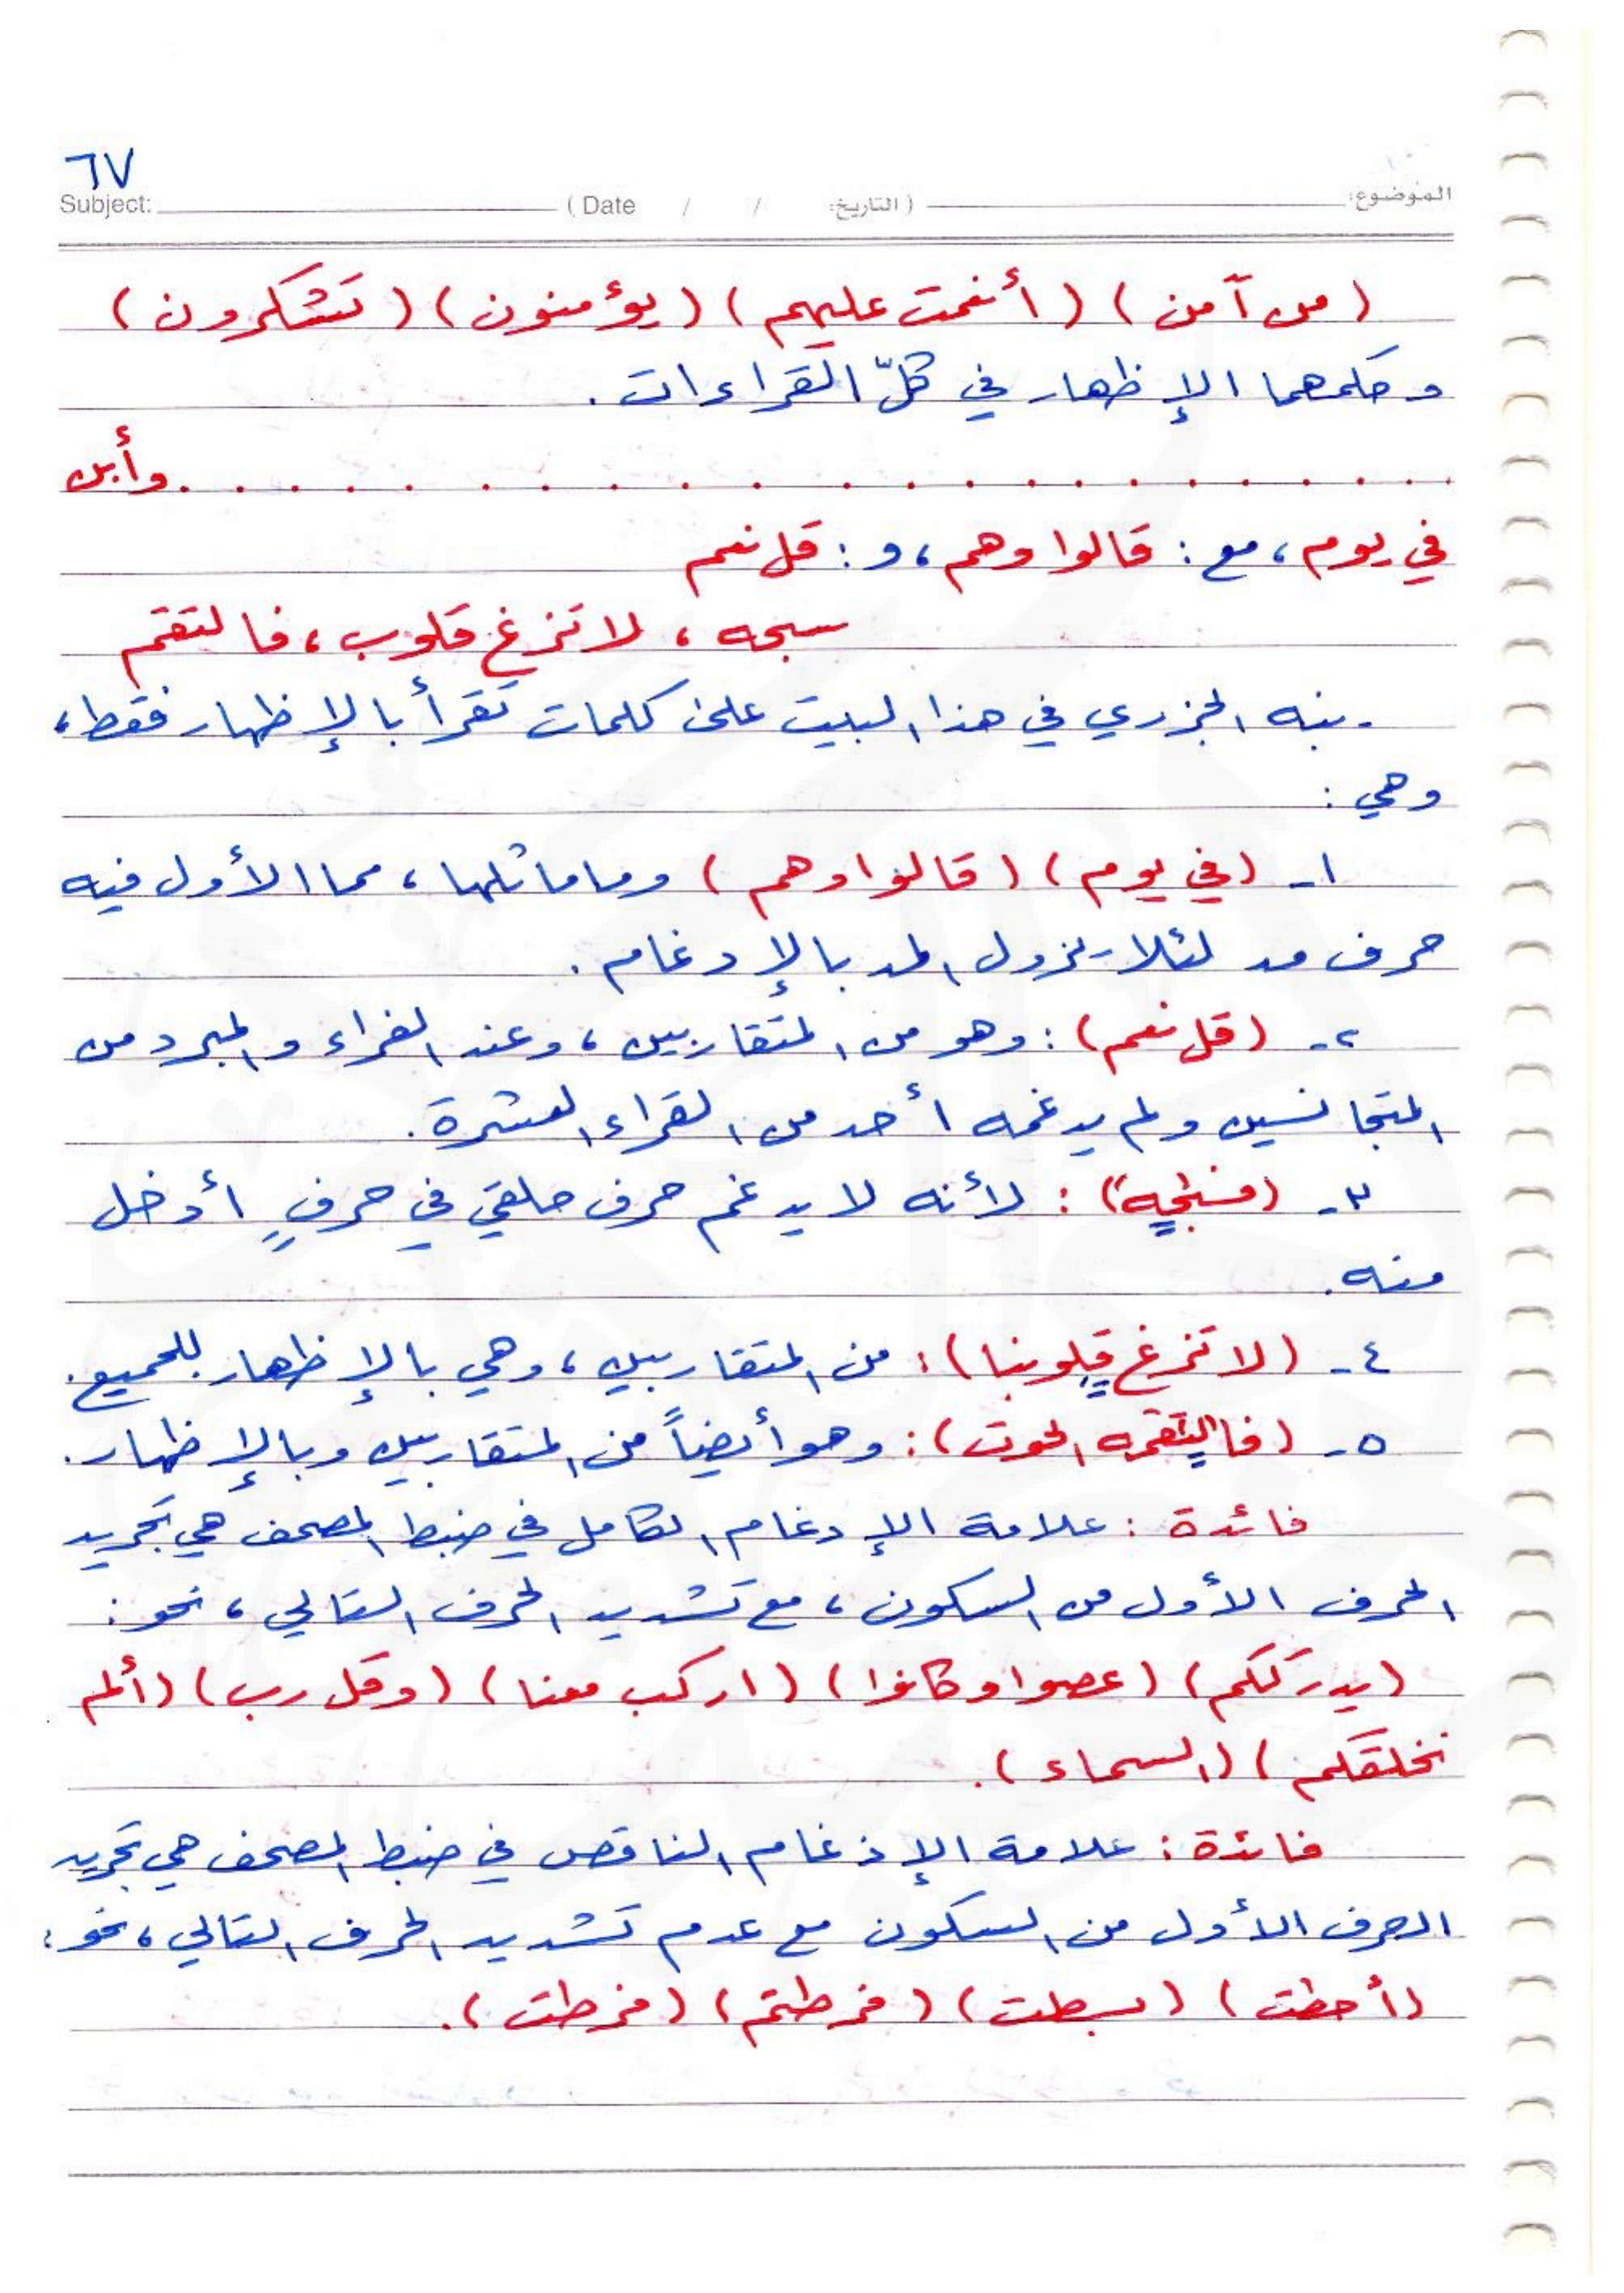 ٦٧
Subject: (Date / / التاريخ:) الموضوع:
(من آمن) (أنعمت عليهم) (يؤمنون) (تشكرون)
وحكمهما الإظهار في كلّ القراءات.
. . . . . . . . . . . . . . . . . . . . وأبن
في يوم، مع: قالوا وهم، و: قل نعم
سبحه، لا تزغ قلوب، فالتقم
ينبه الجزري في هذا البيت على كلمات تقرأ بالإظهار فقط،
وهي:
١- (في يوم) (قالوا وهم) وما ماثلها، مما الأول فيه
حرف مد لئلا يزول المد بالإدغام.
٢- (قل نعم): وهو من المتقاربين، وعند الفراء والمبرد من
المتجانسين ولم يدغمه أحد من القراء العشرة.
٣- (فسبحه): لأنه لا يدغم حرف حلقي في حرفٍ أدخل
منه.
٤- (لا تزغ قلوبنا): من المتقاربين، وهي بالإظهار للجميع.
٥- (فالتقمه الحوت): وهو أيضاً من المتقاربين وبالإظهار.
فائدة: علامة الإدغام الكامل في ضبط المصحف هي تجريد
الحرف الأول من السكون، مع تشديد الحرف التالي، نحو:
(يدرككم) (عصوا وكانوا) (اركب معنا) (وقل رب) (ألم
نخلقكم) (السماء).
فائدة: علامة الإدغام الناقص في ضبط المصحف هي تجريد
الحرف الأول من السكون مع عدم تشديد الحرف التالي، نحو:
(أحطت) (بسطت) (فرطتم) (فرطت).